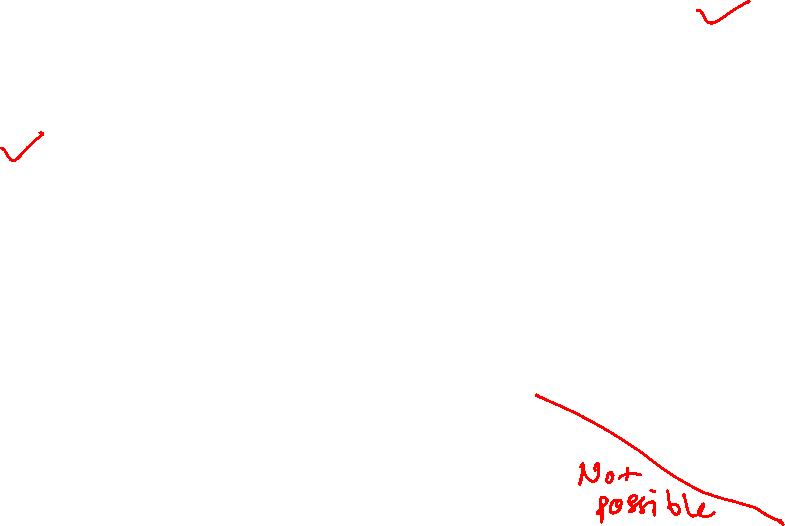 Not
possible